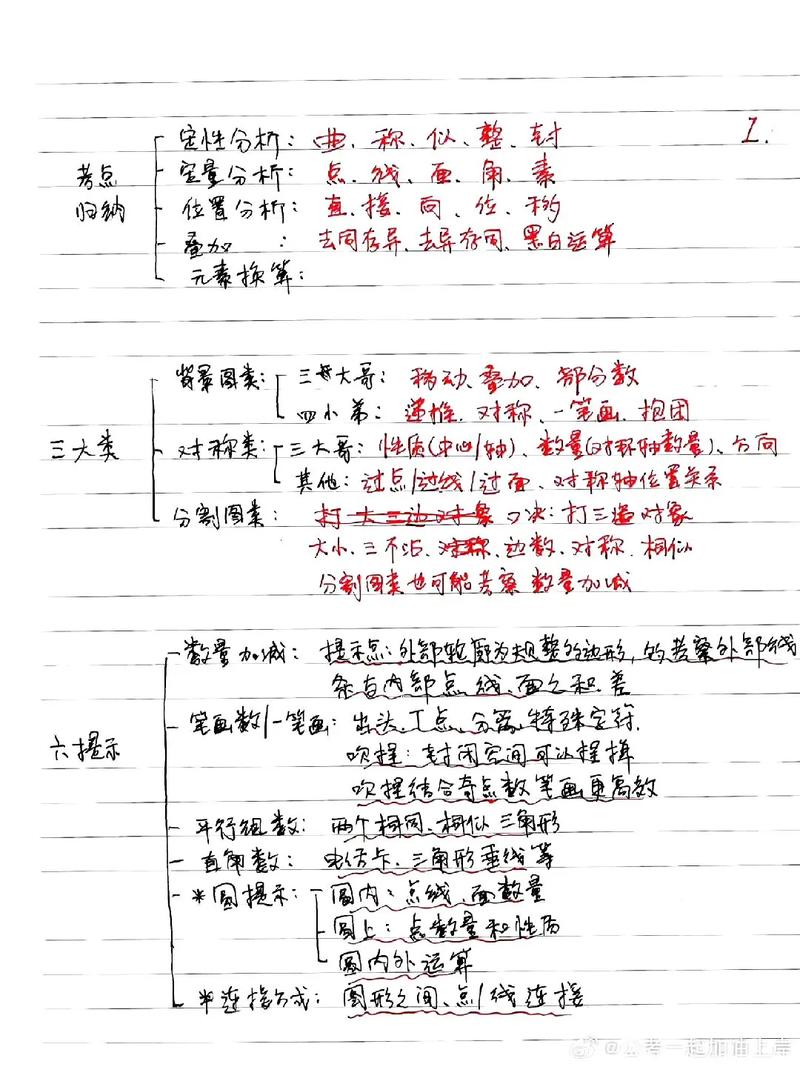 1.
定性分析：曲、称、似、整、封
考点 定量分析：点、线、面、角、素
归纳 位置分析：直、接、向、位、移
叠加：去同存异、去异存同、黑白运算
元素换算：
背景图类：三大哥：移动、叠加、部分数
四小弟：递推、对称、一笔画、抱团
三大类 对称类：三大哥：性质(中心/轴)、数量(对称轴数量)、方向
其他：过点/过线/过面、对称轴位置关系
分割图类：口决：打三造对象
大小、三不沾、边数、对称、相似
分割图类也可能考察数量加减
数量加减：提示点：外部轮廓为规整的边形，的考察外部线
条与内部点、线、面之和、差
六提示 笔画数/一笔画：出头、丁点、分离、特殊字符.
吹捏：封闭空间可以捏掉
吹捏结合奇点数笔画更高效
平行组数：两个相同、相似三角形
直角数：电话卡、三角形垂线等
*圆提示：圆内：点线、面数量
圆上：点数量和性质
圆内外运算
*连接方式：图形之间、点/线连接
@公考一起加油上岸